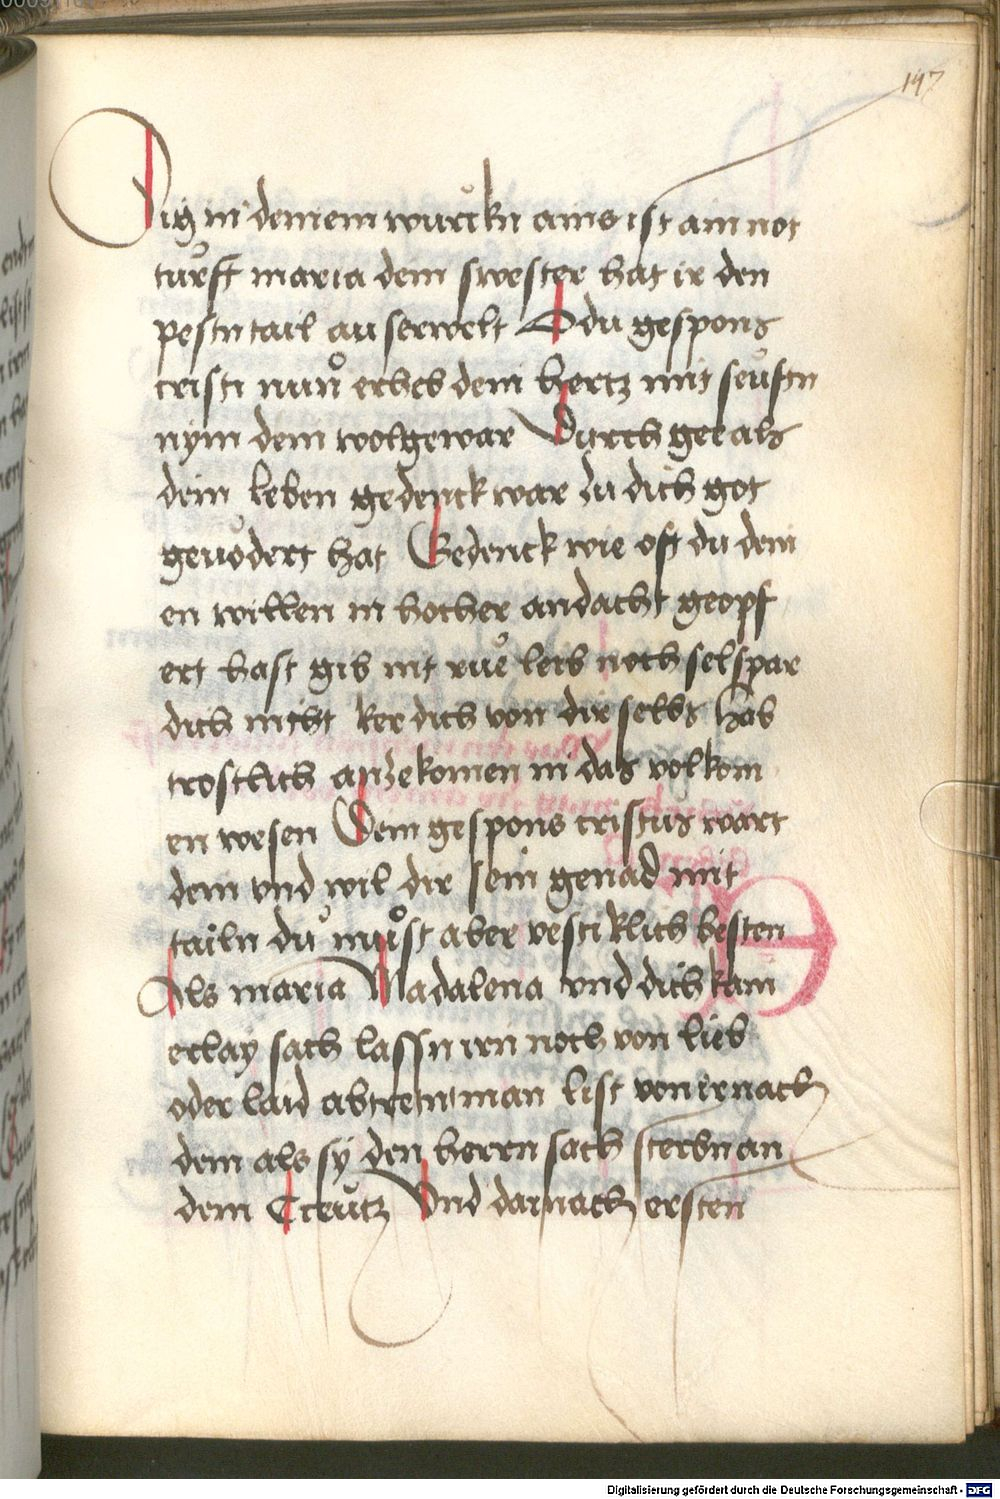 147
Dig in deinem wurckn ains ist ain not
turft maria dein swester hat ir den
pestn tail auserwelt O du gespons
cristi nun erheb dein hertz mit seuftzn
nym dein wolgewar Durch gee als
dein leben gedenck war zu dich got
geuodert hat Gedenck wie oft du dein
en willen in hocher andacht geopf
ert hast gib nit rue leib noch sel spar
dich nicht ker dich von dir selbs hab
trostlich anzekomen in das volkom
en wesen Dein gespons cristus wart
dein vnd wil dir sein genad mit
tailn du muost aber vestiklich besten
Als maria Madalena vnd dich kain
erlay sach lassn irn noch von lieb
oder laid abtretn man list von ir nach
dem als sy den herrn sach sterbn an
dem Creutz Vnd darnach ersten
Digitalisierung gefördert durch die Deutsche Forschungsgemeinschaft - DFG